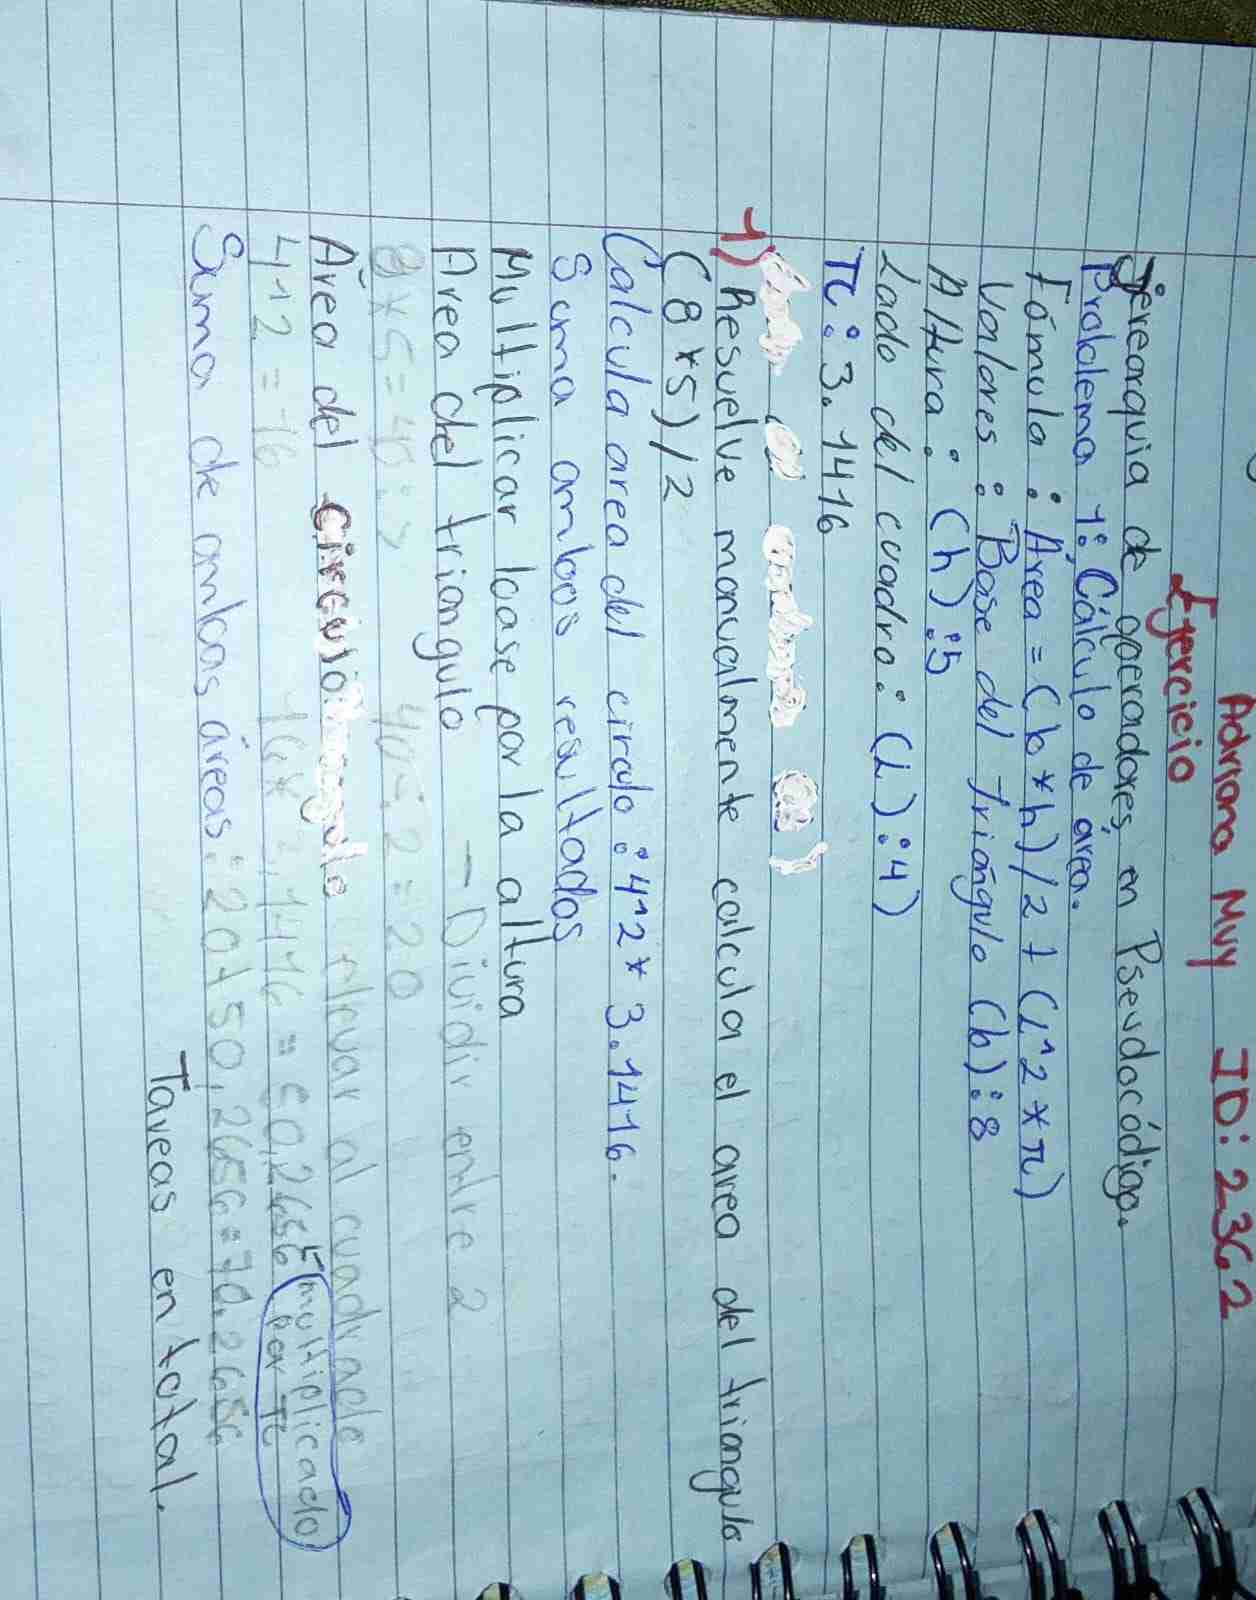 Adriana Muy ID: 2362
Ejercicio
Jerearquia de operadores, en Pseudocódigo.
Problema 1: Cálculo de área.
Fómula: Área = (b*h)/2 + (1^2*π)
Valores: Base del triángulo (b):8
Altura: (h):5
Lado del cuadro: (L):4)
π: 3.1416
1) Resuelve manualmente calcula el area del triangulo
(8*5)/2
Calcula area del circulo: 4^2 * 3.1416.
Suma ambos resultados
Multiplicar base por la altura
Area del triangulo - Dividir entre 2
8*5=40:2 40÷2=20
Área del circulo elevar al cuadrado
4^2 = 16 16*3,1416 = 50,2656 multiplicado por π
Suma de ambas áreas: 20+50,2656=70.2656
Tareas en total.